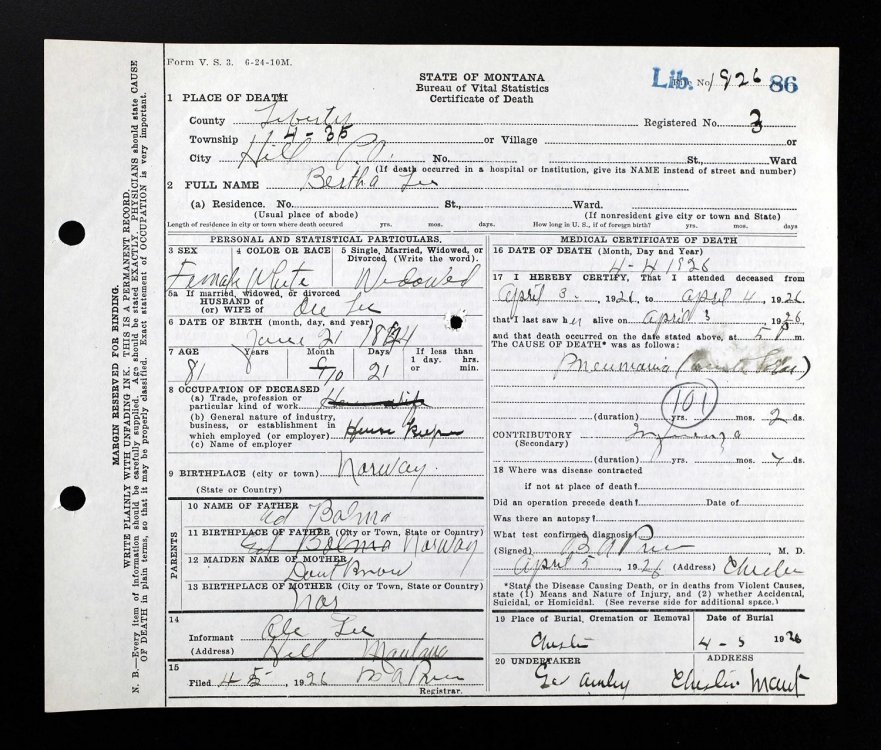 Form V. S. 3. 6-24-10M.
STATE OF MONTANA
Bureau of Vital Statistics
Certificate of Death
Lib. No. 1926 86
1 PLACE OF DEATH
County Liberty Registered No. 3
Township 4-35 or Village or
City Hill P.O. No. St., Ward
(If death occurred in a hospital or institution, give its NAME instead of street and number)
2 FULL NAME Bertha Lee
(a) Residence. No. St., Ward.
(Usual place of abode) (If nonresident give city or town and State)
Length of residence in city or town where death occurred yrs. mos. days How long in U. S., if of foreign birth? yrs. mos. days
PERSONAL AND STATISTICAL PARTICULARS.
3 SEX 4 COLOR OR RACE 5 Single, Married, Widowed, or
Divorced, (Write the word).
Female White Widowed
5a If married, widowed, or divorced
HUSBAND of
(or) WIFE of Ole Lee
6 DATE OF BIRTH (month, day, and year)
June 21 1844
7 AGE Years Month Days If less than
1 day. hrs.
min.
81 10 21
8 OCCUPATION OF DECEASED
(a) Trade, profession or
particular kind of work Housewife
(b) General nature of industry,
business, or establishment in
which employed (or employer) House Keeper
(c) Name of employer
9 BIRTHPLACE (city or town) Norway.
(State or Country)
PARENTS
10 NAME OF FATHER
Ed Bolma
11 BIRTHPLACE OF FATHER (City or Town, State or Country)
Ed Bolma Norway
12 MAIDEN NAME OF MOTHER
Dont Know
13 BIRTHPLACE OF MOTHER (City or Town, State or Country)
Nor
14
Informant Ole Lee
(Address) Hill Montana
15
Filed 4-5, 1926
Registrar.
MEDICAL CERTIFICATE OF DEATH
16 DATE OF DEATH (Month, Day and Year)
4-4 1926
17 I HEREBY CERTIFY, That I attended deceased from
April 3, 1926, to April 4, 1926
that I last saw her alive on April 3, 1926,
and that death occurred on the date stated above, at 5 P m.
The CAUSE OF DEATH* was as follows:
Pneumonia
101
(duration) yrs. mos. 2 ds.
CONTRIBUTORY Influenza
(Secondary)
(duration) yrs. mos. 7 ds.
18 Where was disease contracted
if not at place of death?
Did an operation precede death? Date of
Was there an autopsy?
What test confirmed diagnosis?
(Signed) M. D.
April 5, 1926 (Address) Chester
*State the Disease Causing Death, or in deaths from Violent Causes,
state (1) Means and Nature of Injury, and (2) whether Accidental,
Suicidal, or Homicidal. (See reverse side for additional space.)
19 Place of Burial, Cremation or Removal Date of Burial
Chester 4-5 1926
20 UNDERTAKER ADDRESS
Chester Mont
MARGIN RESERVED FOR BINDING.
WRITE PLAINLY WITH UNFADING INK. THIS IS A PERMANENT RECORD.
N. B.—Every item of information should be carefully supplied. Age should be stated EXACTLY. PHYSICIANS should state CAUSE
OF DEATH in plain terms, so that it may be properly classified. Exact statement of OCCUPATION is very important.